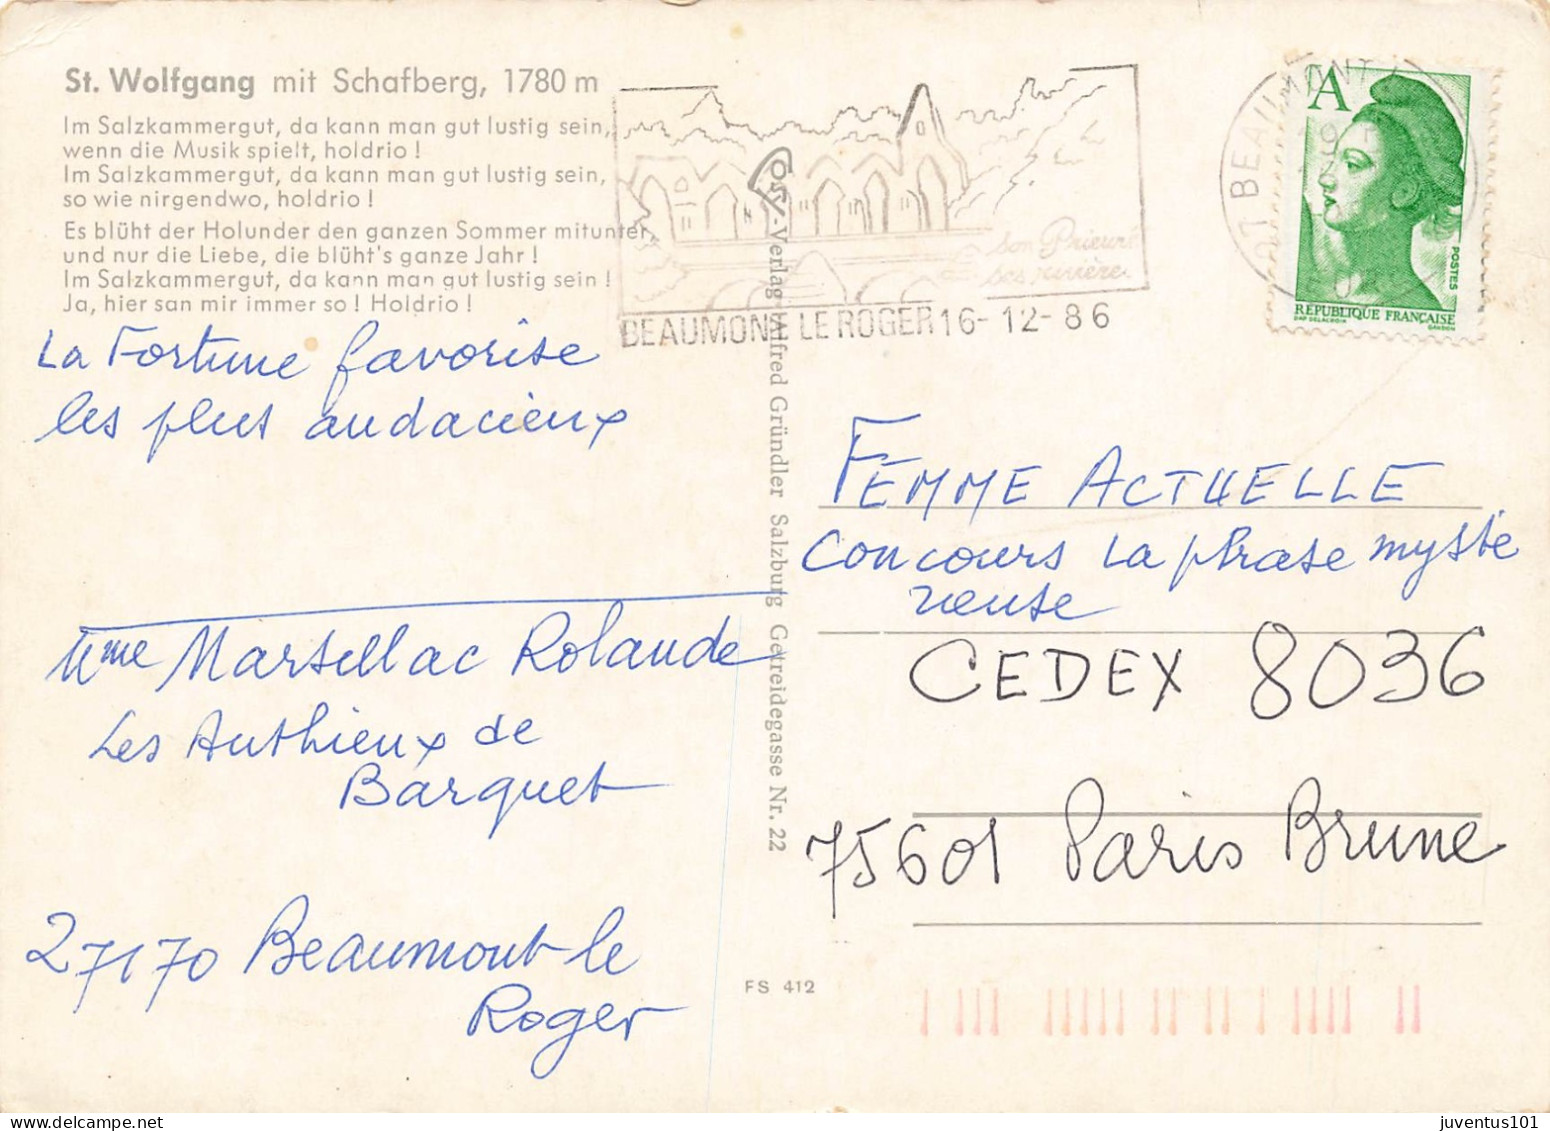 St. Wolfgang mit Schafberg, 1780 m
Im Salzkammergut, da kann man gut lustig sein,
wenn die Musik spielt, holdrio !
Im Salzkammergut, da kann man gut lustig sein,
so wie nirgendwo, holdrio !
Es blüht der Holunder den ganzen Sommer mitunter,
und nur die Liebe, die blüht's ganze Jahr !
Im Salzkammergut, da kann man gut lustig sein !
Ja, hier san mir immer so ! Holdrio !
La Fortune favorise
les plus audacieux
Mme Marsellac Rolande
Les Authieux de
Barquet
27170 Beaumont le
Roger
Cosy-Verlag Alfred Gründler Salzburg Getreidegasse Nr. 22
FS 412
son Prieuré
ses rivières
BEAUMONT LE ROGER 16-12-86
BEAUMONT
A
POSTES
REPUBLIQUE FRANÇAISE
DAP DELACROIX GANDON
FEMME ACTUELLE
Concours La phrase mysté
rieuse
CEDEX 8036
75601 Paris Brune
juventus101